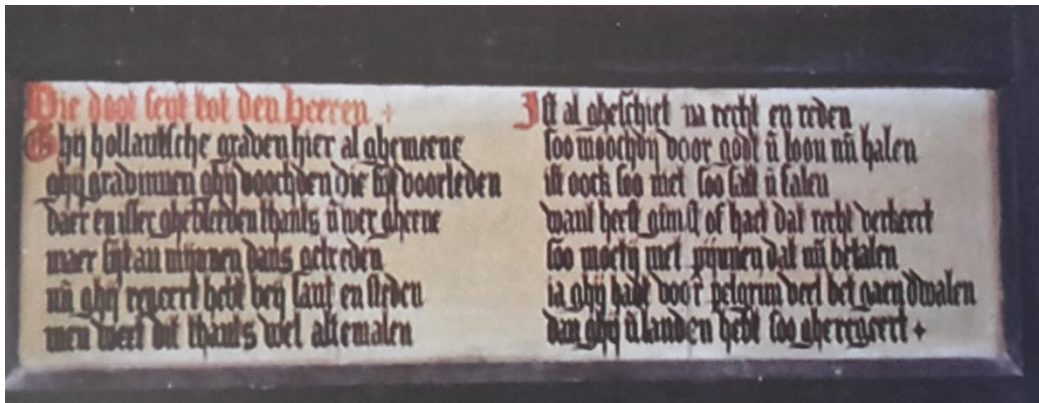 Die doot seyt tot den heeren +
Ghij hollantsche graven hier al ghemeene
ghij gravinnen ghij voochden die sijt voorleden
daer en isser ghebleven thants ũwer gheene
maer sijt an mijnnen dans getreden
nũ ghij regeert hebt beij lant en steden
men weet dit thants wel altemalen
Ist al gheschiet na recht en reden
soo moochdij voor godt ũ loon nũ halen
ist oock soo niet soo salt ũ falen
want heeft gũnst of haet dat recht verkeert
soo moetij met pijnnen dat nũ betalen
ia ghij hadt voor pelgrim veel bet gaen dwalen
dan ghij ũ landen hebt soo gheregeert +